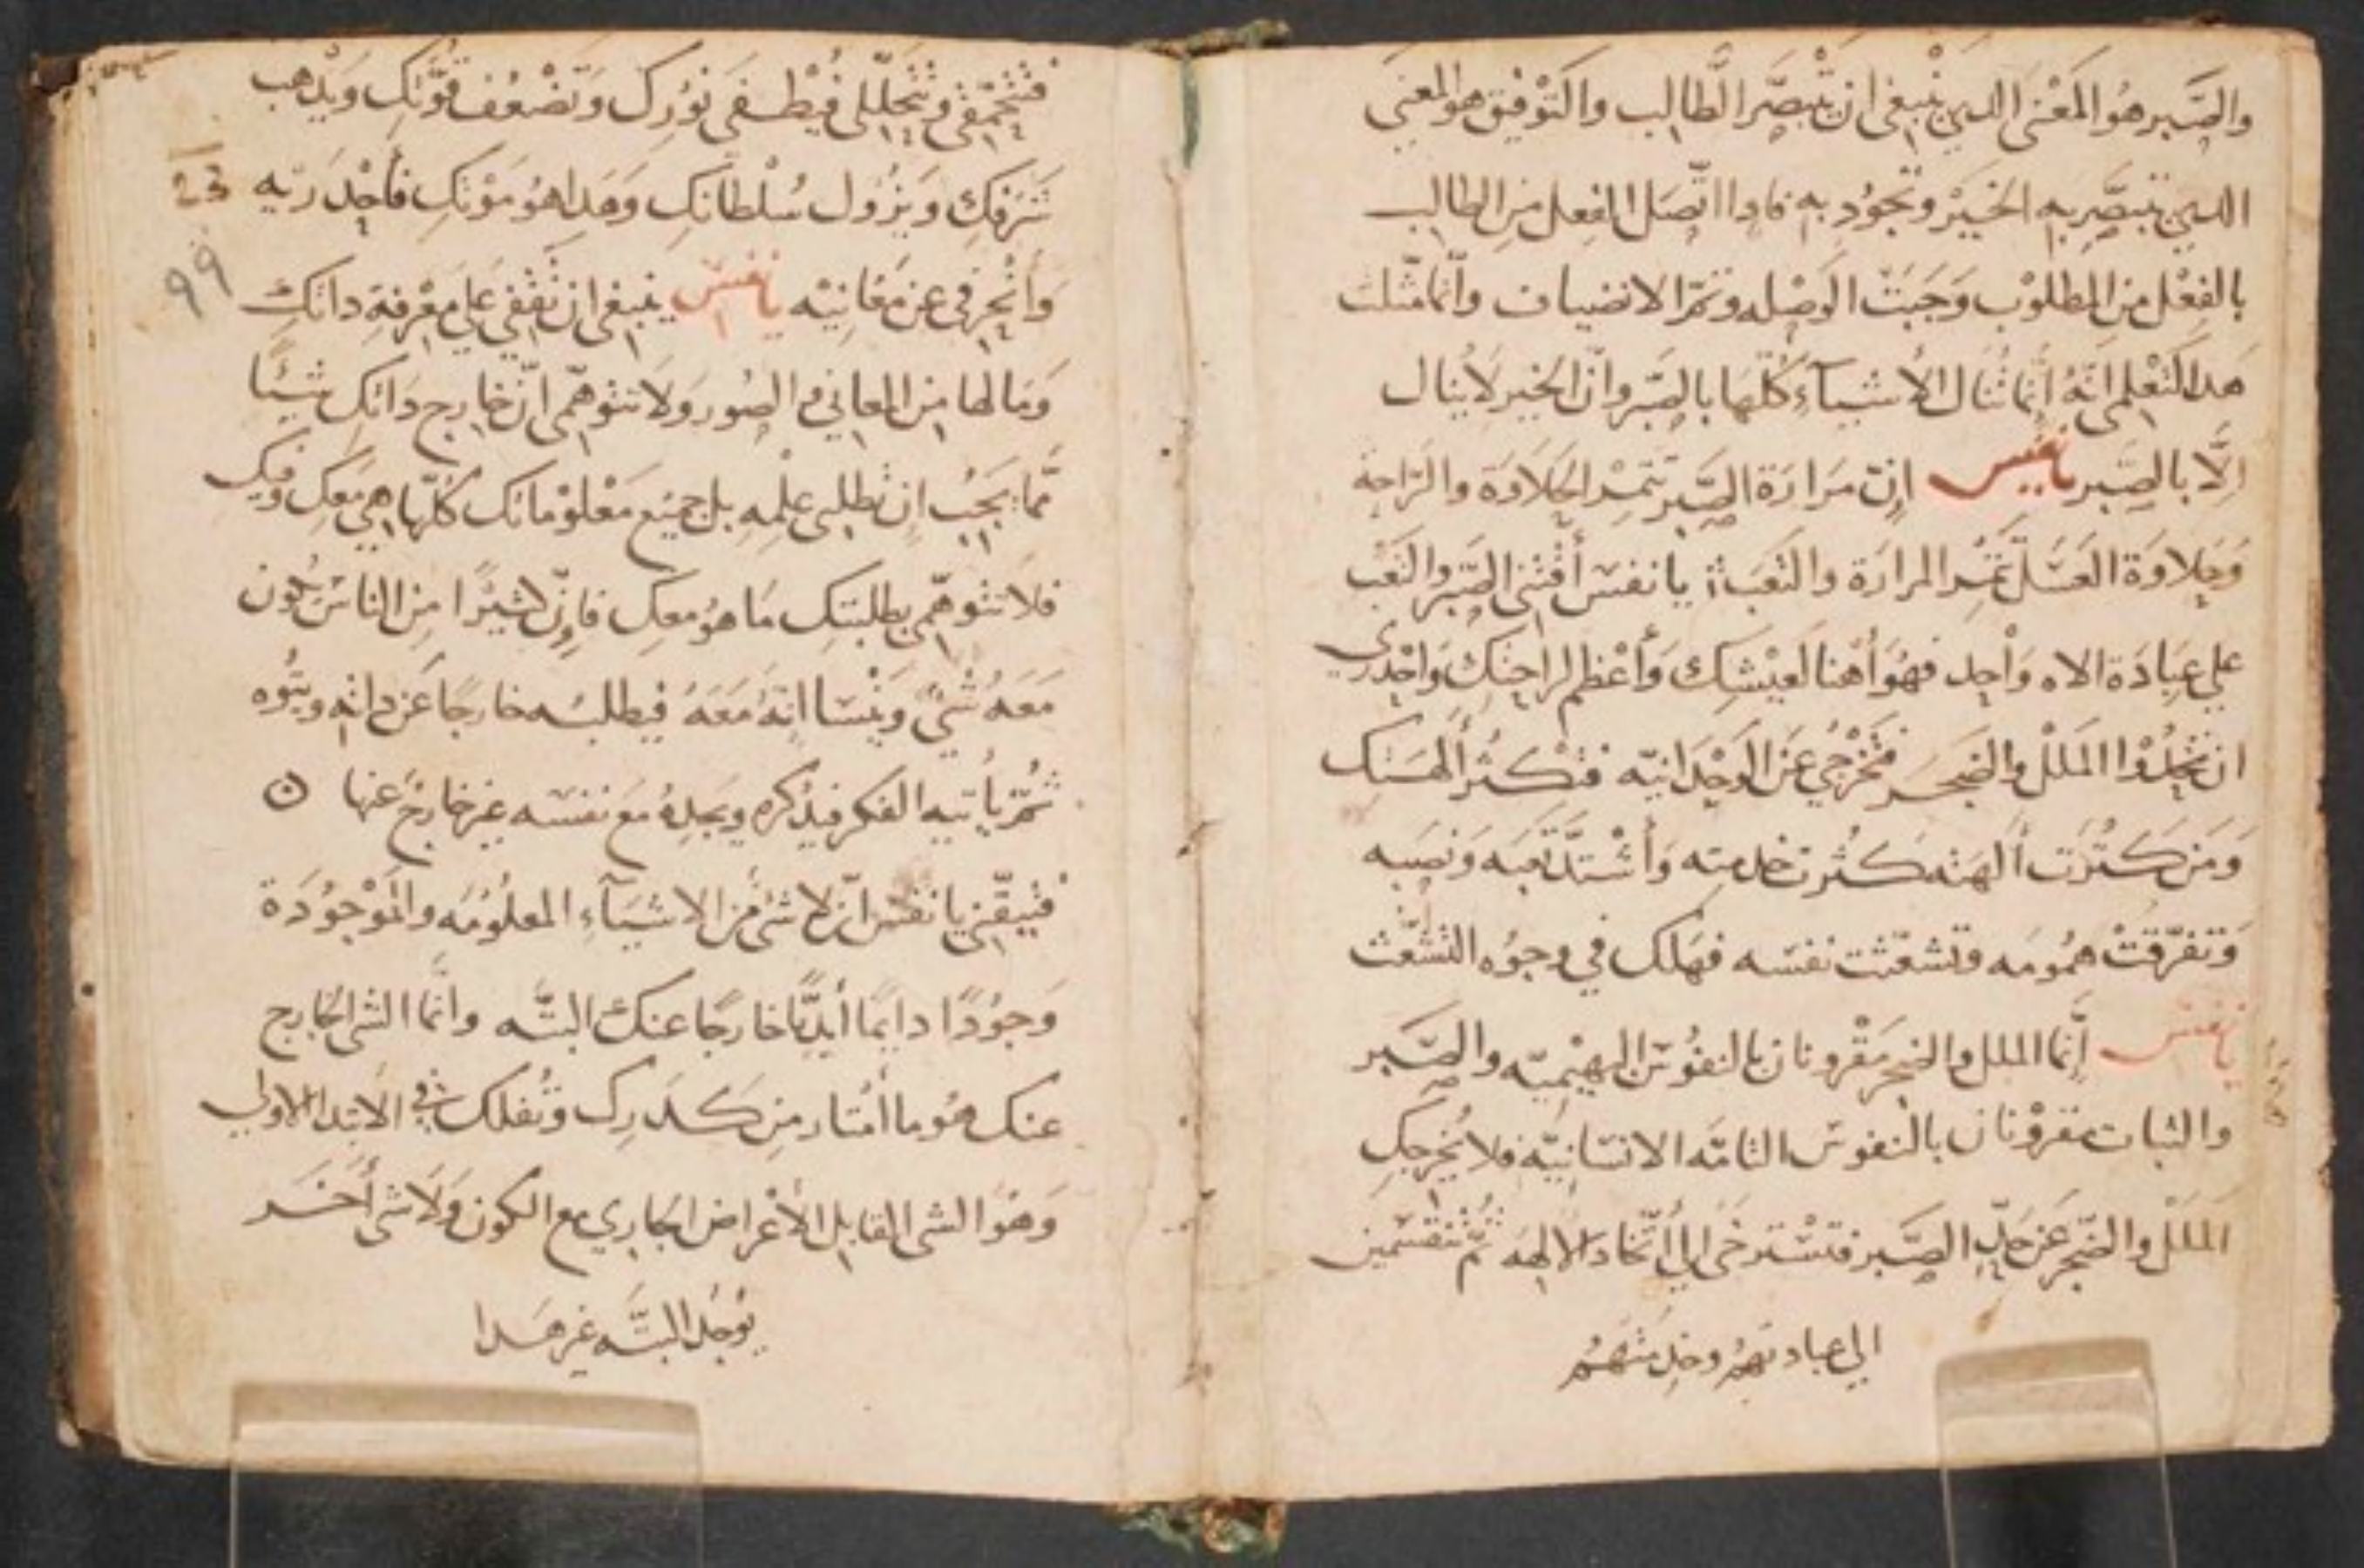 والصَّبر هُو المَعْنى الدي يَنْبغى ان يَتْبصَّر الطالِب والتَوْفيق هو المعنى
الدي تتبصَّر به الخَيْر وتجوُد به فادا اتّصَل الفِعل مِن الطالب
بالفِعْل من المطلوْب وَجَبَتْ الوَصْله وتمّ الانضياف وانّما مثّلت
هَدا لتَعْلمى انّهُ انّما تُنال الأشيآءِ كُلّهَا بالصَّبر وانّ الخير لا يُنال
اِلّا بالصَّبر يا نفس اِنّ مَرارَة الصَّبر تتمِر الحَلَاوَة والرّاحة
وَحَلِاوَة العَسَل تُتمِر المرارَة والتَعَب يا نفسَ أقتنى الصَّبر والتَعَب
علي عِبَادَة الاه وَاحِد فهُوَ أهْنا لعيْشِك وَأعْظم لراحتكِ وَاحْدري
ان تجْلُدْوا المَلَل والضجَر فتَخْرُجي عَن الوَحْدَانيّه فتكثر ألهَتك
وَمَن كَتُرَت أَلهَته كثرت خدمته وَأشْتدَّ تعَبه وَنصَبه
وَتفرّقتْ همُومَه وتشعّثت نفسَه فهَلك في وجوُه التشعّث
يا نفسَ إنّما الملل والضجر مَقْرونان بالنفُوسَ البهِيْميّه والصَّبر
والثبات مقرْونان بالنفوسَ التامّه الانسَانيّه فلا يُخرجكِ
المَلَلْ والضّجر عَن حَدِّ الصَّبر فتسْترخَى الي أتّخاد الآلِهَه ثمّ تنقسَمين
الي عبادتهمُ وخدمتهمُ
فتنْمحقى وتتحَلِّلى فيُطفى نوُرك وَتضْعُف قوَّتكِ وَيدْهب
شَرَفكِ وَيزُوُل سُلطانكِ وَهَدا هُو مَوْتكِ فأحْدَريه
23
99
وَأنْحرفى عن مَعَانيْه يا نفسَ ينبغى ان تقفى عَلي مَعْرفةِ داتكِ
وَمَا لهَا مِن المعاني والصُور وَلا تتوَهّمى انّ خارِج دَاتكِ شيْئًا
ممّا يَجَبُ ان تطلبى علمِهِ بل جميْع مَعْلوْماتك كُلّها هِي مَعَكِ وفيكِ
فلا تتوَهّمى بطلبتكِ مَا هوُ معكِ فاِنّ كثيْرًا مِن الناسَ يَكُون
مَعَهُ شَيْ وَيَنْسَا انهُ مَعَهُ فيطلبُه خارجًا عَن داته ويتُوه
ثُمّ يأتيه الفكر فيدْكره ويَجدهُ مَع نفسَه غير خارجْ عَنها ن
فتيقّني يا نفسَ انّ لا شئ مِن الاشيَآءِ المعلوُمَه والمَوْجوُدَة
وَجوُدًا دايمًا أبَدًّا خارجًا عنك البتّه وانَّما الشى الخارج
عنك هُو ما أمتَار مِن كَدَركِ وثُفلك في الابتدا الاولي
وَهُوَ الشى القابل الأعْراض الجَاري مع الكون وَلَا شى أخَر
يوُجَد البتّه غير هَدا